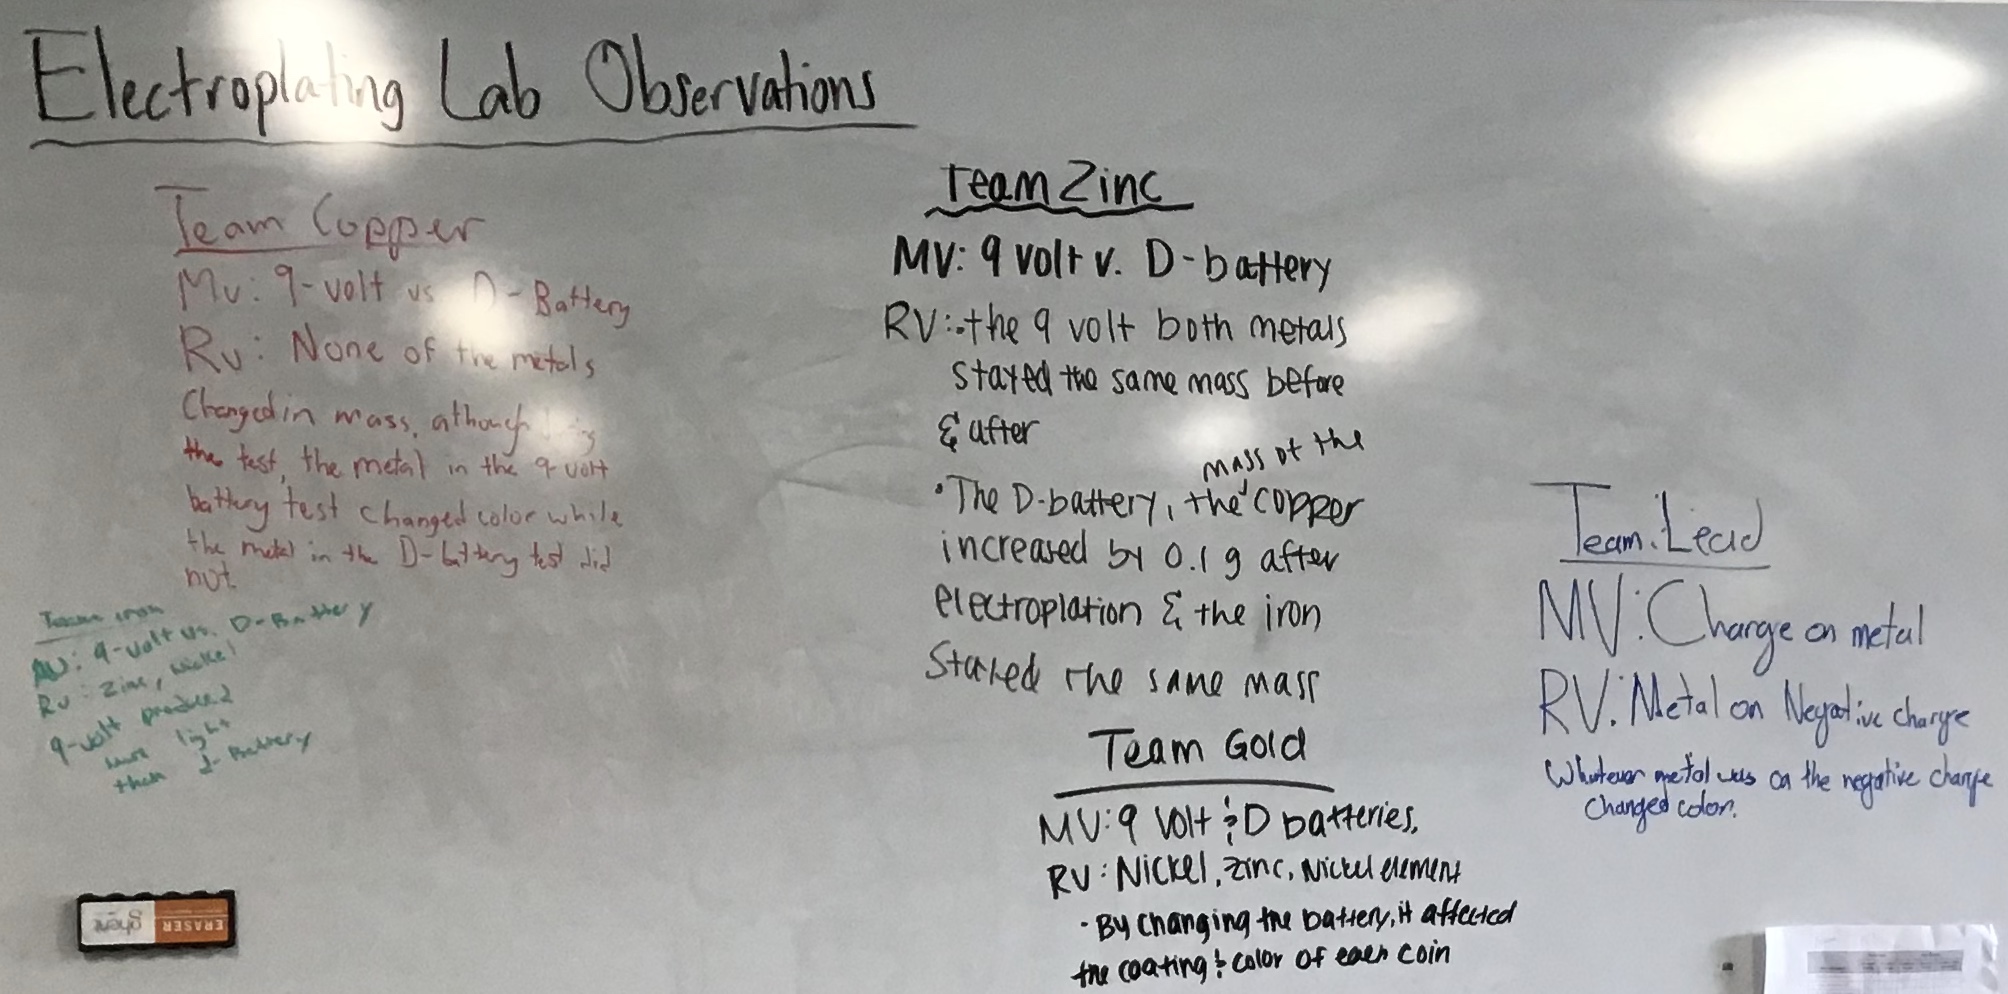 Electroplating Lab Observations
Team Copper
Mv: 9-volt vs D-Battery
Rv: None of the metals
Changed in mass, athough
the test, the metal in the 9-volt
battery test changed color while
the metal in the D-battery test did
not
Team iron
MV: 9-volt vs. D-Battery
RV: Zinc, Nickel
9-volt produced
light
than d-Battery
Team Zinc
MV: 9 volt v. D-battery
RV: • the 9 volt both metals
stayed the same mass before
& after
mass of the
• The D-battery, the copper
increased by 0.1 g after
electroplation & the iron
Stayed the same mass
Team Gold
MV: 9 Volt & D batteries.
RV: Nickel, zinc, Nickel element
- By changing the battery, it affected
the coating & color of each coin
Team: Lead
MV: Charge on metal
RV: Metal on Negative charge
Whatever metal was on the negative charge
changed color.
ERASER
ghent